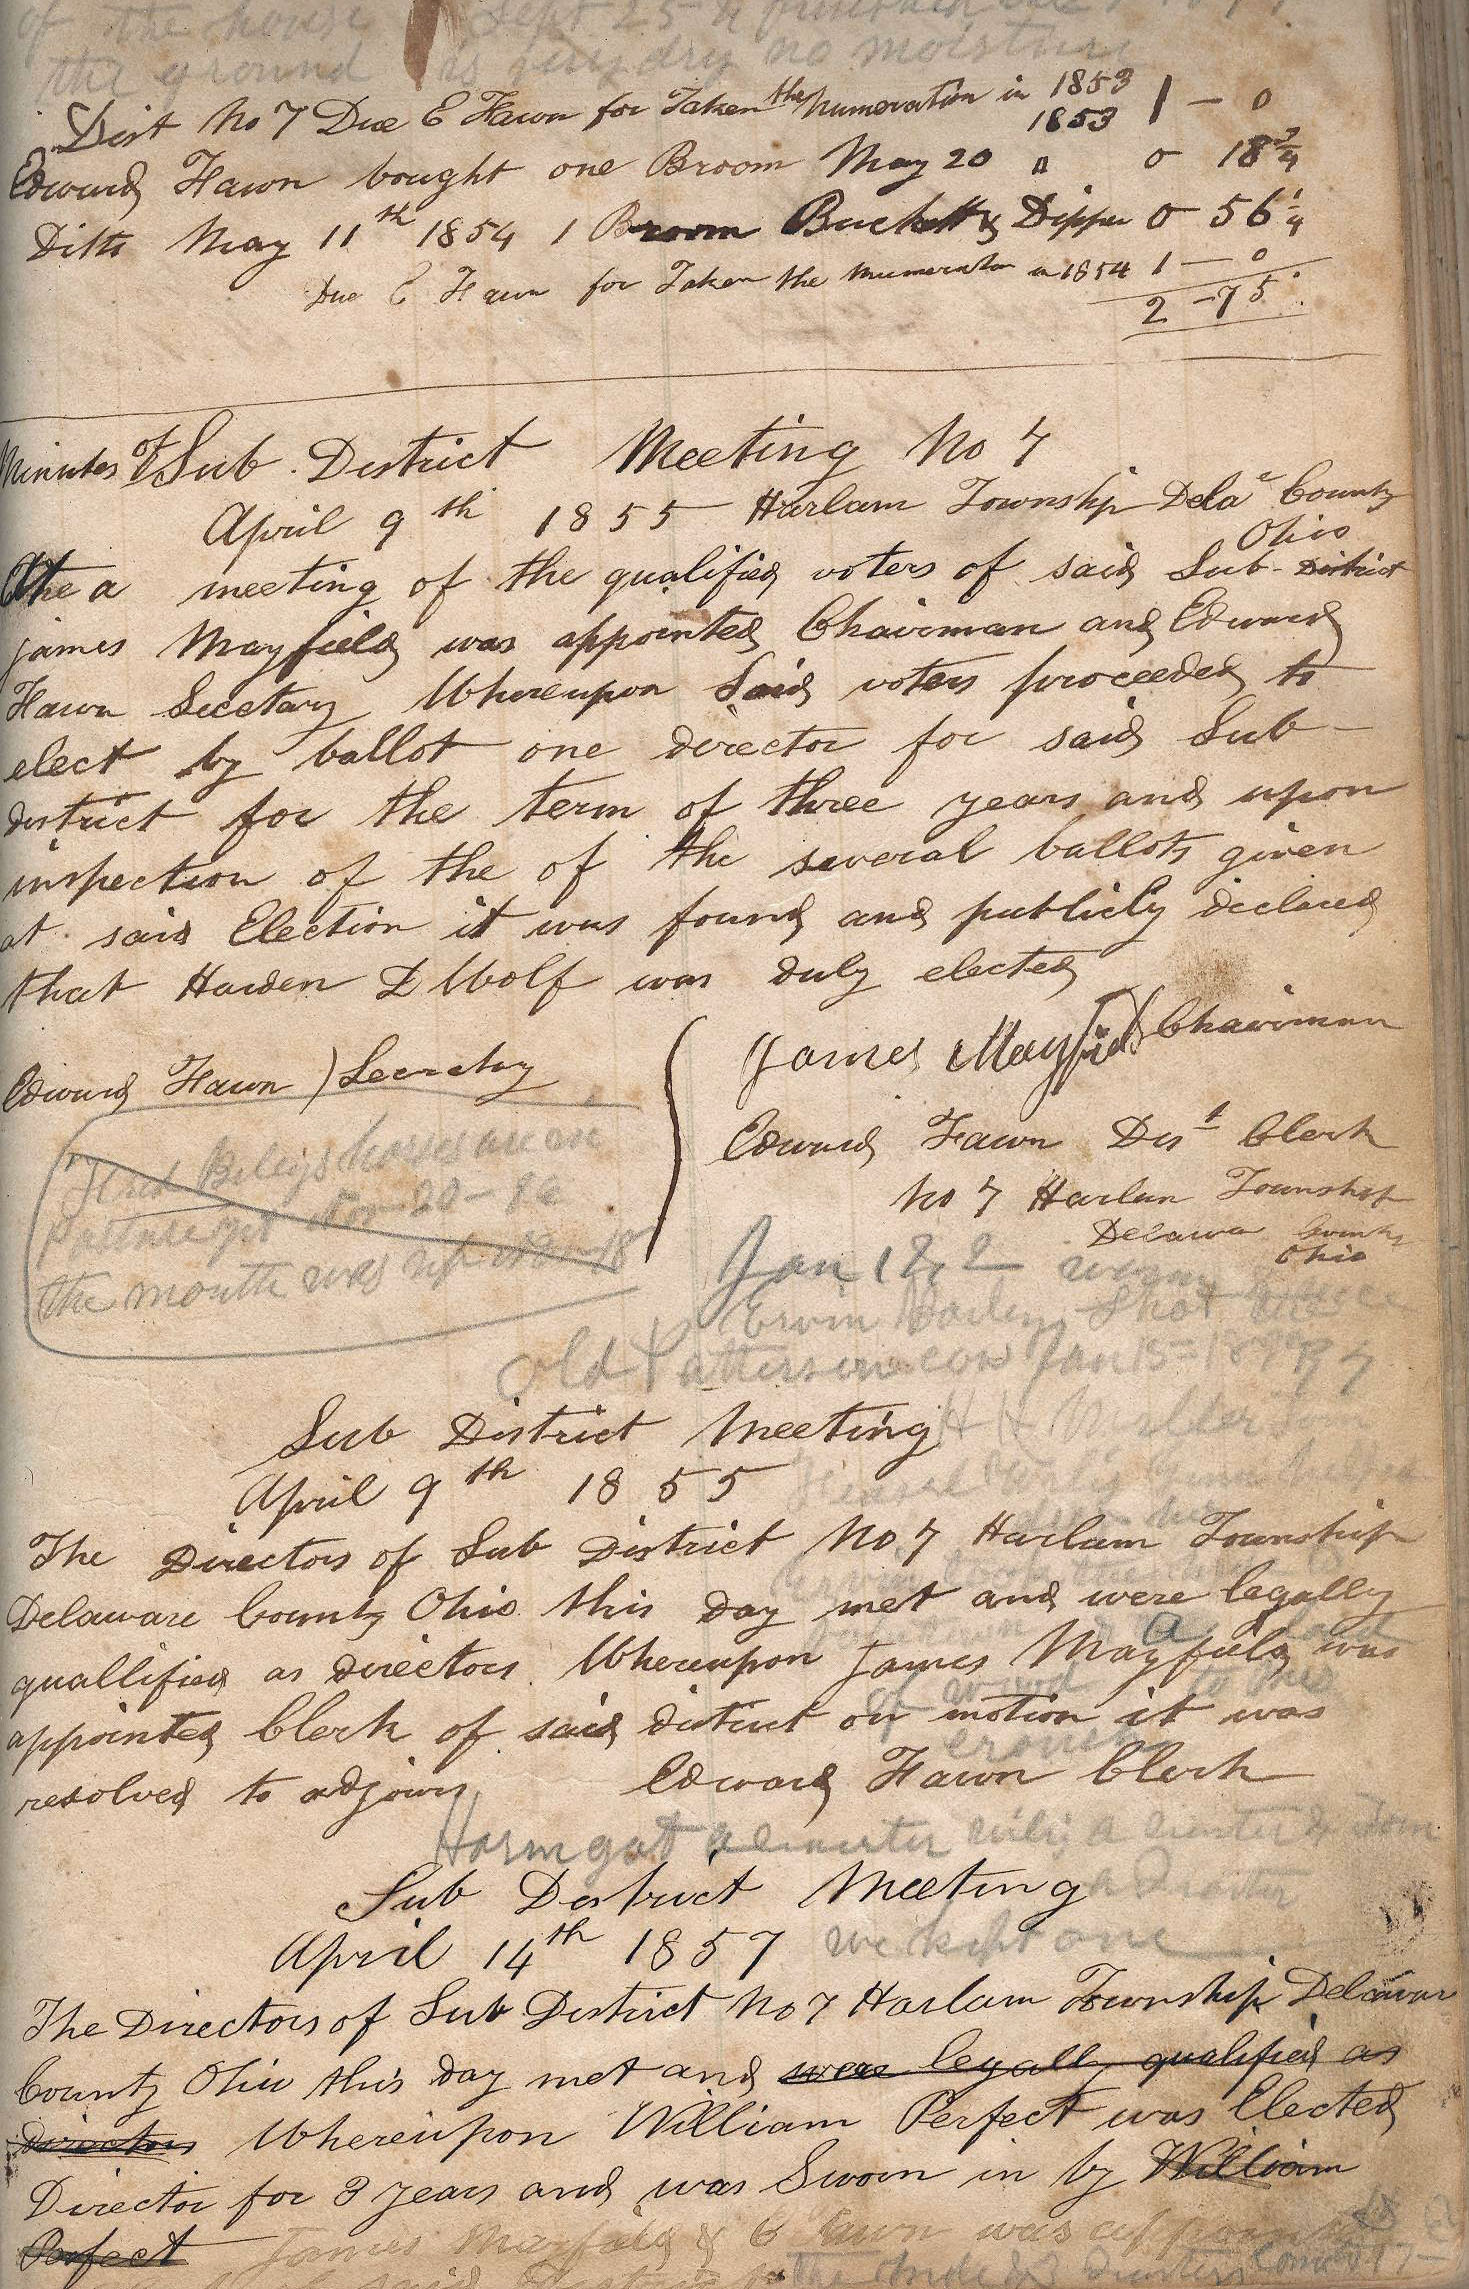 of the house Sept 25
the ground is very dry no moisture
Dist No 7 Due E Fawn for Taken the Numeration in 1853 1 — 0
1853
Edward Fawn bought one Broom May 20 " 0 18 3/4
Ditto May 11th 1854 1 Broom Buckett & Dipper 0 56 1/4
Due E Fawn for Taken the Numeration in 1854 1 — 0
2 – 75
Minutes of Sub District Meeting No 7
April 9th 1855 Harlam Township Delae County
Ohio
At a meeting of the qualified voters of said Sub-District
james Mayfield was appointed Chairman and Edward
Fawn Secetary Whereupon Said voters proceeded to
elect by ballot one director for said Sub-
district for the term of three years and upon
inspection of the of the several ballots given
at said Election it was found and publicly declared
that Harden D Wolf was duly elected
James Mayfield Chairman
Edward Fawn ) Secretay
Edward Fawn Dist Clerk
No 7 Harlem Township
Delawa County
Ohio
horses are in
pasture Nov 20
the month was up 18
Jan 1 & 2 warm
Ervin Shot
Old Patterson cow Jan 15 – 1897
Sub District Meeting
April 9th 1855
The Directors of Sub District No 7 Harlam Township
Delaware County Ohio this day met and were legally
quallified as directors Whereupon James Mayfield was
appointed Clerk of said district on motion it was
of wood to
resolved to adjourn Edward Fawn Clerk
Harm got a
Sub District Meeting
April 14th 1857 we kept one
The Directors of Sub District No 7 Harlam Township Delawar
County Ohio this day met and were legally qualified as
Directors Whereupon William Perfect was Elected
Director for 3 years and was Sworn in by William
Perfect James Mayfield & E Fawn was appointed